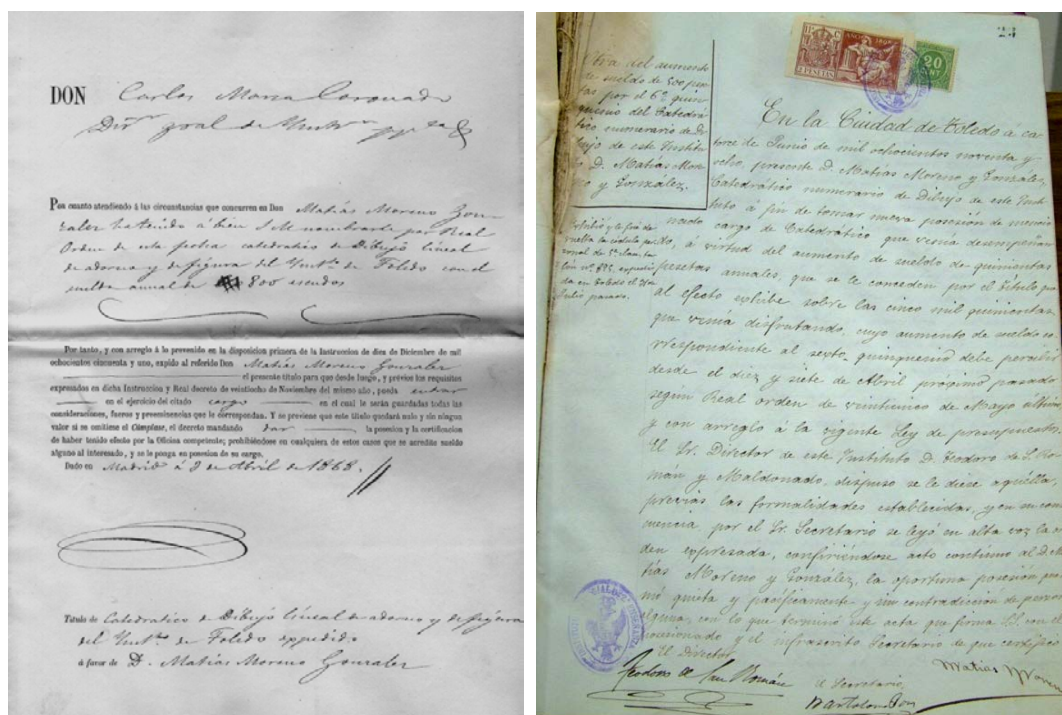 DON Carlos María Coronado
Dir.or gral de
Por cuanto atendiendo á las circunstancias que concurren en Don Matías Moreno Gon-
zalez ha tenido á bien S M nombrarle por Real
Orden de esta fecha catedratico de Dibujo lineal
de adorno y de figura del Instto de Toledo con el
sueldo anual de 800 escudos
Por tanto, y con arreglo á lo prevenido en la disposicion primera de la Instruccion de diez de Diciembre de mil
ochocientos cincuenta y uno, expido al referido Don Matías Moreno Gonzalez
el presente título para que desde luego, y prévios los requisitos
expresados en dicha Instruccion y Real decreto de veintiocho de Noviembre del mismo año, pueda entrar
en el ejercicio del citado cargo en el cual le serán guardadas todas las
consideraciones, fueros y preeminencias que le correspondan. Y se previene que este título quedará nulo y sin ningun
valor si se omitiese el Cúmplase, el decreto mandando dar la posesion y la certificacion
de haber tenido efecto por la Oficina competente; prohibiéndose en cualquiera de estos casos que se acredite sueldo
alguno al interesado, y se le ponga en posesion de su cargo.
Dado en Madrid á 2 de Abril de 1868.
Título de Catedratico de Dibujo lineal de adorno y de figura
del Instto de Toledo expedido
á favor de D. Matías Moreno Gonzalez
2 PESETAS
20
CENT
del aumento
de sueldo de 500 pese-
tas por el 6º quin-
quenio del Catedrá-
tico numerario de Di-
bujo de este Institu-
to D. Matías More-
no y González.
En la Ciudad de Toledo á ca-
torce de Junio de mil ochocientos noventa y
ocho, presente D. Matías Moreno y González,
Catedrático numerario de Dibujo de este Insti-
tuto á fin de tomar nueva posesión del mencio-
nado cargo de Catedrático que venía desempeñan-
do, á virtud del aumento de sueldo de quinientas
pesetas anuales, que se le conceden por el título que
al efecto exhibe sobre las cinco mil quinientas
que venía disfrutando, cuyo aumento de sueldo co-
rrespondiente al sexto quinquenio debe percibir
desde el diez y siete de Abril próximo pasado
según Real orden de veintiuno de Mayo último
y con arreglo á la vigente Ley de presupuestos.
El Sr. Director de este Instituto D. Teodoro de S. Ro-
mán y Maldonado, dispuso se le diese aquélla,
previas las formalidades establecidas, y en su conse-
cuencia, por el Sr. Secretario se leyó en alta voz la or-
den expresada, confiriéndose acto continuo al D. Ma-
tías Moreno y González, la oportuna posesión que
tomó quieta y pacíficamente y sin contradicción de persona
alguna, con lo que terminó este acta que firma S.S. con el
posesionado y el infrascrito Secretario de que certifico
El Director
Teodoro de San Román
El Secretario,
Matías Moreno